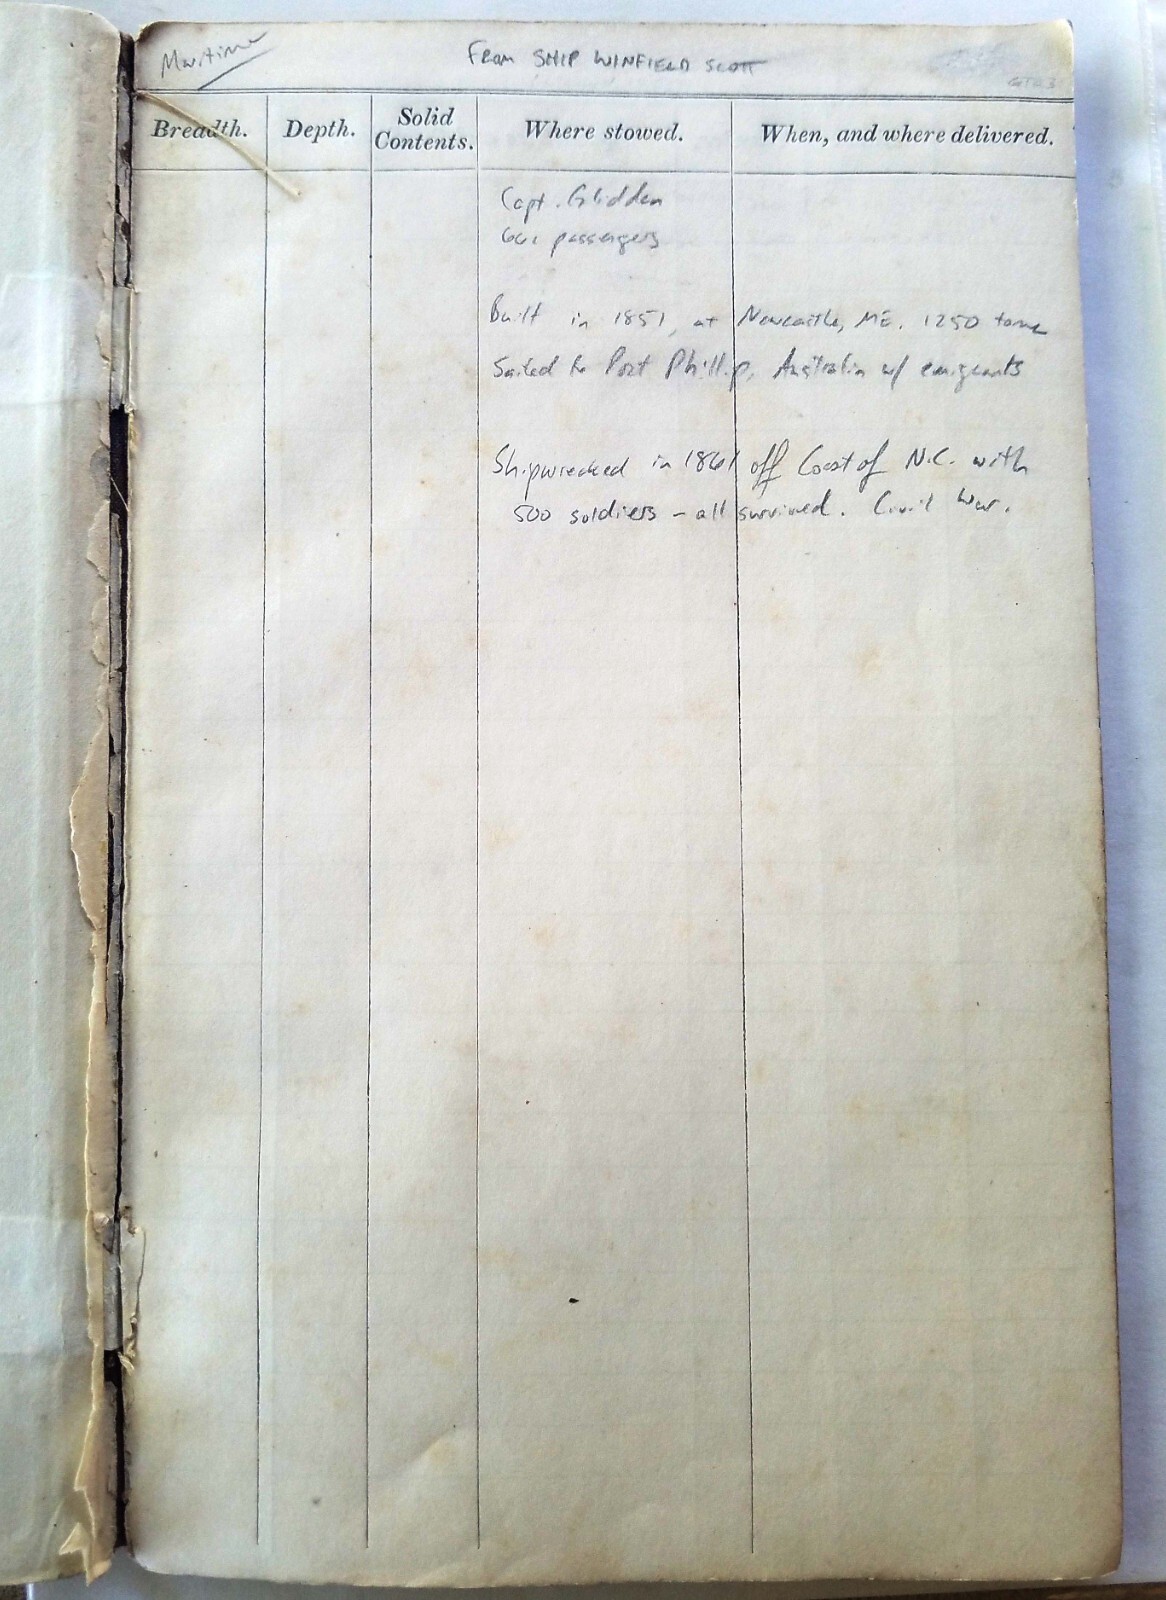 Maritime
FROM SHIP WINFIELD SCOTT
Breadth.
Depth.
Solid
Contents.
Where stowed.
When, and where delivered.
Capt. Glidden
passengers
Built in 1851, at Newcastle, ME. 1250 tons
Sailed to Port Phillip, Australia w/ emigrants
Shipwrecked in 1861 off Coast of N.C. with
500 soldiers - all survived. Civil War.